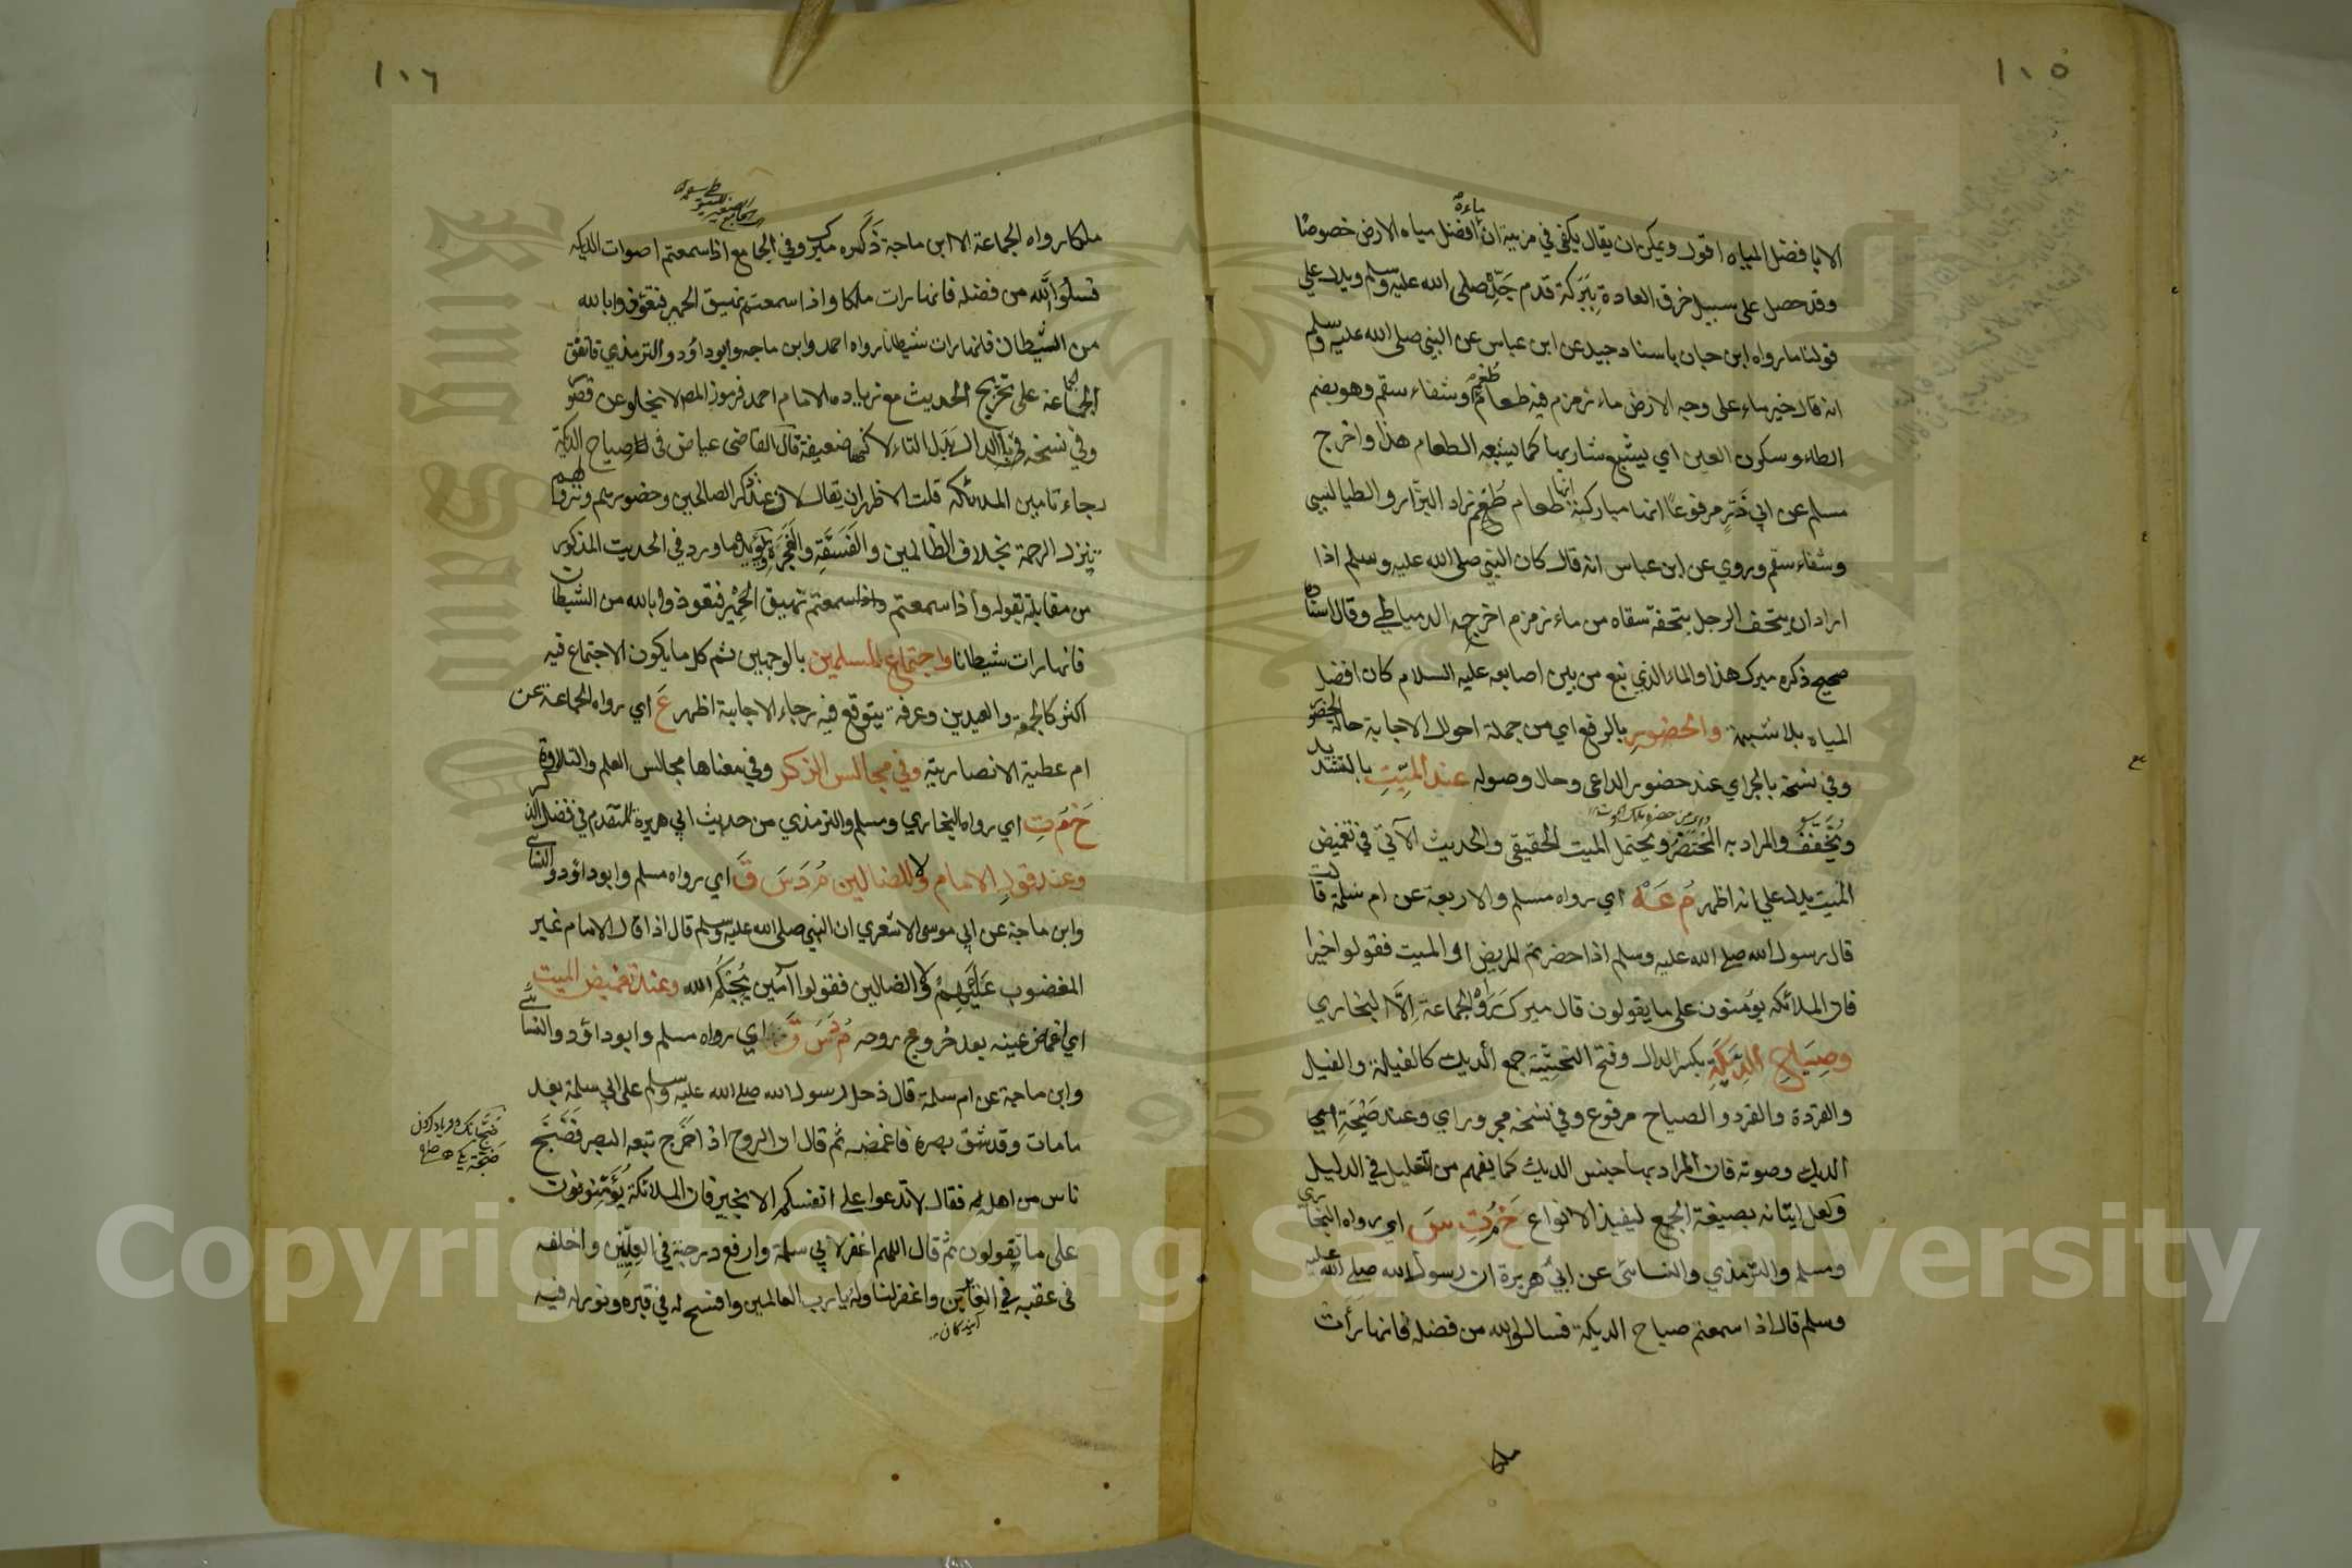 ١٠٥
الا بافضل المياه اقول ويمكن ان يقال يكفي في مزيته ان ماءه افضل مياه الارض خصوصا
وقد حصل على سبيل خرق العادة ببركة قدم جده صلى الله عليه وسلم ويدل على
قولنا ما رواه ابن حبان باسناد جيد عن ابن عباس عن النبي صلى الله عليه وسلم
انه قال خير ماء على وجه الارض ماء زمزم فيه طعام طعم وشفاء سقم وهو بضم
الطاء وسكون العين اي يشبع شاربها كما يشبعه الطعام هذا واخرج
مسلم عن ابي ذر مرفوعا انها مباركة انها طعام طعم زاد البزار والطيالسي
وشفاء سقم وروي عن ابن عباس انه قال كان النبي صلى الله عليه وسلم اذا
اراد ان يتحف الرجل بتحفة سقاه من ماء زمزم اخرجه الدمياطي وقال اسناده
صحيح ذكره ميرك هذا والماء الذي نبع من بين اصابعه عليه السلام كان افضل
المياه بلا شبهة والحضور بالرفع اي من جملة احوال الاجابة حالة الحضور
وفي نسخة بالجر اي عند حضور الداعي وحال وصوله عند الميّت بالتشديد
ويخفف والمراد به المحتضر ويحتمل الميت الحقيقي والحديث الآتي في تغميض
الميت يدل على انه اظهر م عه اي رواه مسلم والاربعة عن ام سلمة قالت
قال رسول الله صلى الله عليه وسلم اذا حضرتم المريض او الميت فقولوا خيرا
فان الملائكة يؤمنون على ما يقولون قال ميرك رواه الجماعة الا البخاري
وصياح الديكة بكسر الدال وفتح التحتية جمع الديك كالفيلة والفيل
والقردة والقرد والصياح مرفوع وفي نسخة مجرور اي وعند صيحة اي
الديك وصوته فان المراد بها جنس الديك كما يفهم من التعليل في الدليل
ولعل اتيانه بصيغة الجمع ليفيد الانواع خ م ت س اي رواه البخاري
ومسلم والترمذي والنسائي عن ابي هريرة ان رسول الله صلى الله عليه
وسلم قال اذا سمعتم صياح الديكة فسالوا الله من فضله فانها رأت
ملكا
١٠٦
ملكا رواه الجماعة الا ابن ماجة ذكره ميرك وفي الجامع اذا سمعتم اصوات الديكة
فسلوا الله من فضله فانها رات ملكا واذا سمعتم نهيق الحمير فتعوذوا بالله
من الشيطان فانها رات شيطانا رواه احمد وابن ماجه وابو داؤد والترمذي فاتفق
الجماعة على تخريج الحديث مع زياده الامام احمد فرموز المص لا يخلو عن قصور
وفي نسخة في بالدال بدل التاء لا كنها ضعيفة قال القاضي عياض في صياح الديكة
رجاء تامين الملائكة قلت الاظهر ان يقال لان عند ذكر الصالحين وحضورهم ونزولهم
تنزل الرحمة بخلاف الظالمين والفسقة والفجرة ويؤيده ما ورد في الحديث المذكور
من مقابلة بقوله واذا سمعتم واذا سمعتم نهيق الحمير فتعوذوا بالله من الشيطان
فانها رات شيطانا واجتماع المسلمين بالوجهين ثم كل ما يكون الاجتماع فيه
اكثر كالجمعة والعيدين وعرفة يتوقع فيه رجاء الاجابة اظهر ع اي رواه الجماعة عن
ام عطية الانصارية وفي مجالس الذكر وفي معناها مجالس العلم والتلاوة
خ م ت اي رواه البخاري ومسلم والترمذي من حديث ابي هريرة المتقدم في فضل الذكر
وعند قول الامام ولا الضالين م د س ق اي رواه مسلم وابو داؤد والنسائي
وابن ماجة عن ابي موسى الاشعري ان النبي صلى الله عليه وسلم قال اذا قال الامام غير
المغضوب عليهم ولا الضالين فقولوا آمين يجبكم الله وعند تغميض الميت
اي اغماض عينه بعد خروج روحه م د س ق اي رواه مسلم وابو داؤد والنسائي
وابن ماجة عن ام سلمة قال دخل رسول الله صلى الله عليه وسلم على ابي سلمة بعد
ما مات وقد شق بصره فاغمضه ثم قال ان الروح اذا خرج تبعه البصر فضج
ناس من اهله فقال لا تدعوا على انفسكم الا بخير فان الملائكة يؤمنون
على ما تقولون ثم قال اللهم اغفر لابي سلمة وارفع درجته في العليين واخلفه
في عقبه في الغابرين واغفر لنا وله يا رب العالمين وافسح له في قبره ونور له فيه
Copyright © King Saud University
King Saud University
1957